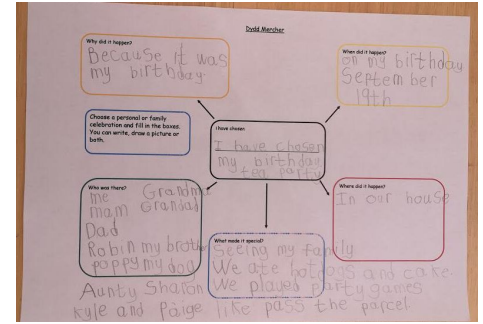 Dydd Mercher
Why did it happen?
Because it was
my birthday.
When did it happen?
on my birthday
September
19th
Choose a personal or family
celebration and fill in the boxes.
You can write, draw a picture or
both.
I have chosen
I have chosen
my birthday
tea party
Who was there?
me Grandma
mam Grandad
Dad
Robin my brother
poppy my dog
Aunty Sharon
Kyle and Paige
Where did it happen?
In our house
What made it special?
Seeing my family
We ate hotdogs and cake
We played party games
like pass the parcel